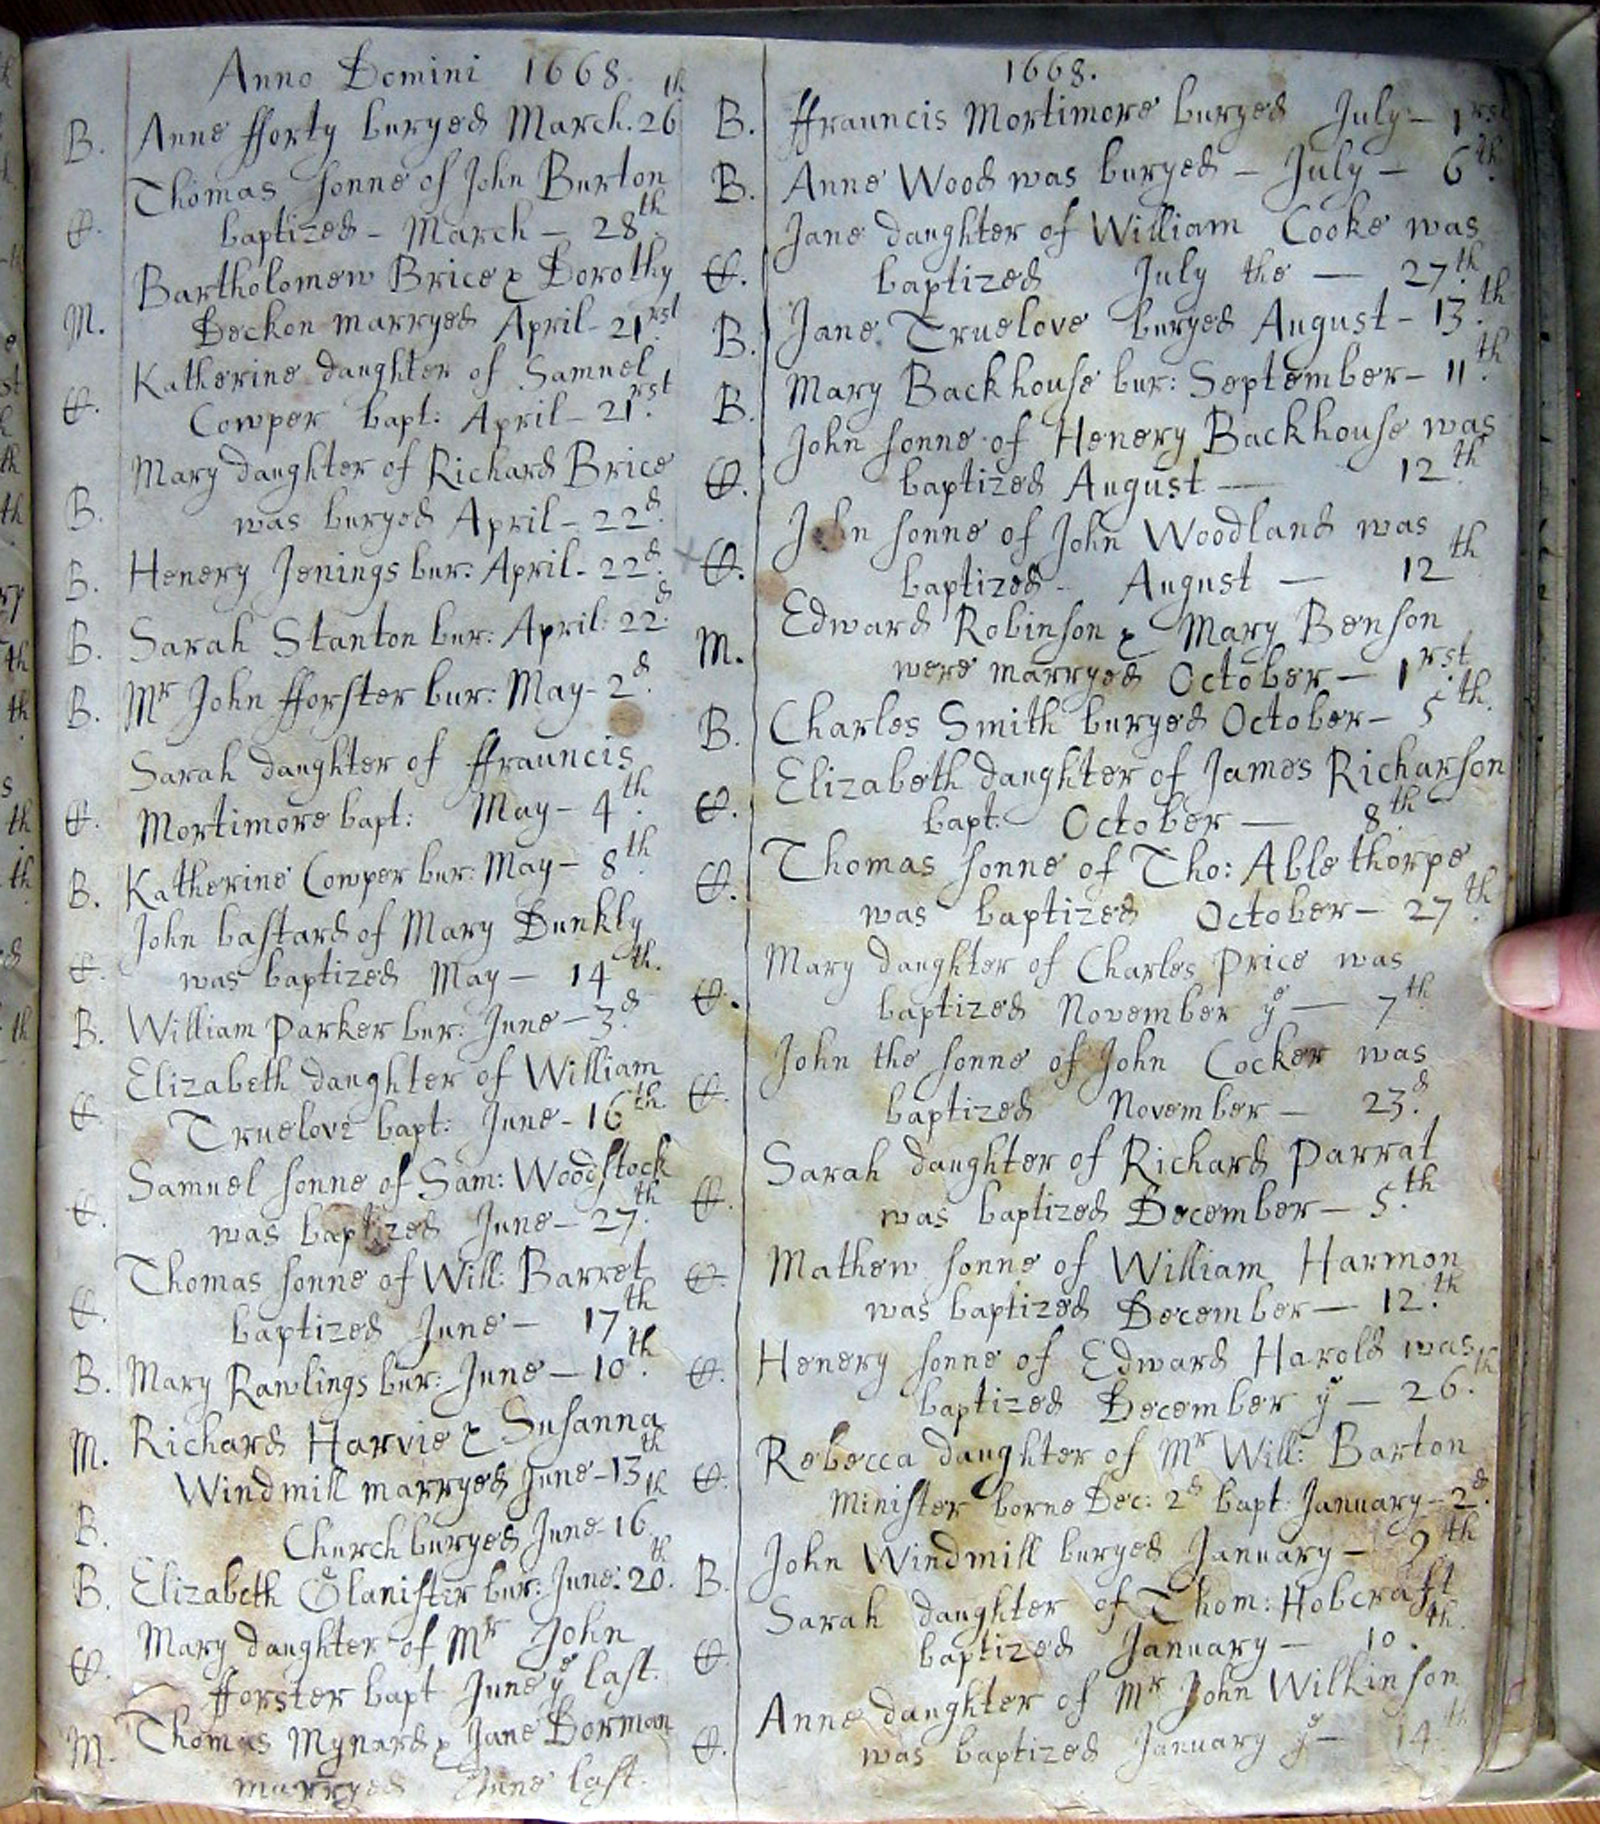 Anno Domini 1668.
B. Anne fforty buryed March. 26th
Thomas sonne of John Burton
C. baptized - March - 28th.
Bartholomew Brice & Dorothy
M. Deckon marryed April - 21rst
Katherine daughter of Samuel
C. Cowper bapt: April - 21rst.
Mary daughter of Richard Brice
B. was buryed April - 22d.
B. Henery Jenings bur: April - 22d.
B. Sarah Stanton bur: April: 22d.
B. Mr John fforster bur: May - 2d.
Sarah daughter of ffrauncis
C. Mortimore bapt: May - 4th.
B. Katherine Cowper bur: May - 8th
John bastard of Mary Dunkly
C. was baptized May - 14th.
B. William Parker bur: June - 3d.
Elizabeth daughter of William
C. Truelove bapt: June - 16th.
Samuel sonne of Sam: Woodstock
C. was baptized June - 27th.
Thomas sonne of Will: Barret
C. baptized June - 17th.
B. Mary Rawlings bur: June - 10th.
M. Richard Harvie & Susanna
Windmill marryed June - 13th
B. Church buryed June - 16th
B. Elizabeth Glanister bur: June: 20th.
Mary daughter of Mr John
C. fforster bapt June ye last.
M. Thomas Mynard & Jane Dorman
marryed June last.
1668.
B. ffrauncis Mortimore buryed July - 1rst
B. Anne Wood was buryed - July - 6th.
Jane daughter of William Cooke was
C. baptized July the - 27th.
B. Jane Truelove buryed August - 13th.
B. Mary Backhouse bur: September - 11th.
John sonne of Henery Backhouse was
C. baptized August - 12th.
John sonne of John Woodland was
C. baptized - August - 12th
Edward Robinson & Mary Benson
M. were marryed October - 1rst.
B. Charles Smith buryed October - 5th.
Elizabeth daughter of James Richarson
C. bapt. October - 8th.
Thomas sonne of Tho: Ablethorpe
C. was baptized October - 27th.
Mary daughter of Charles Price was
C. baptized November ye - 7th.
John the sonne of John Cocker was
C. baptized November - 23d.
Sarah daughter of Richard Parrat
C. was baptized December - 5th.
Mathew sonne of William Harmon
C. was baptized December - 12th.
Henery sonne of Edward Harold was
C. baptized December ye - 26th.
Rebecca daughter of Mr Will: Barton
C. Minister borne Dec: 2d bapt: January - 2d.
B. John Windmill buryed January - 9th
Sarah daughter of Thom: Hobcraft
C. baptized January - 10th.
Anne daughter of Mr John Wilkinson
C. was baptized January ye - 14th